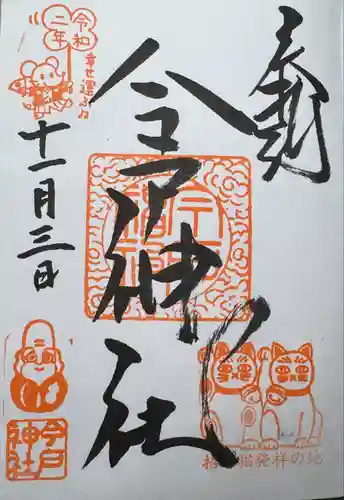 奉拝
今戸神社
令和
二年
幸せ運ぶ
十一月三日
今戸
神社
招き猫発祥の地